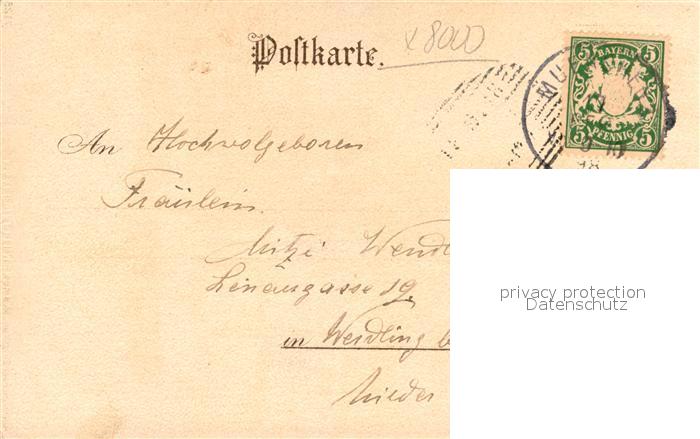 x 8000
Postkarte.
5 BAYERN 5
5 PFENNIG 5
MUENCHEN
98
An Hochwolgeboren
Fräulein
Mitzi Wendl
Lenaugasse 19
in Weidling b
Nieder
privacy protection
Datenschutz